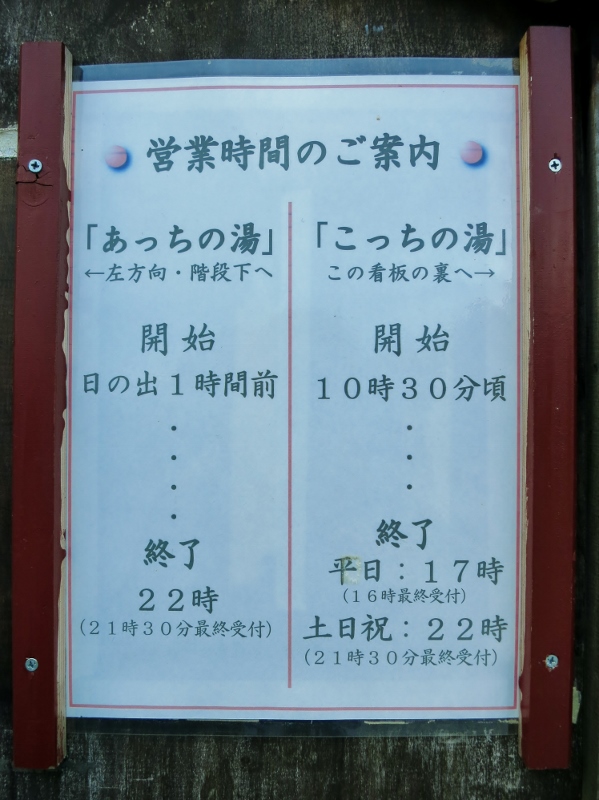 営業時間のご案内
「あっちの湯」
←左方向・階段下へ
開始
日の出１時間前
・
・
・
・
終了
２２時
（２１時３０分最終受付）
「こっちの湯」
この看板の裏へ→
開始
１０時３０分頃
・
・
・
終了
平日：１７時
（１６時最終受付）
土日祝：２２時
（２１時３０分最終受付）